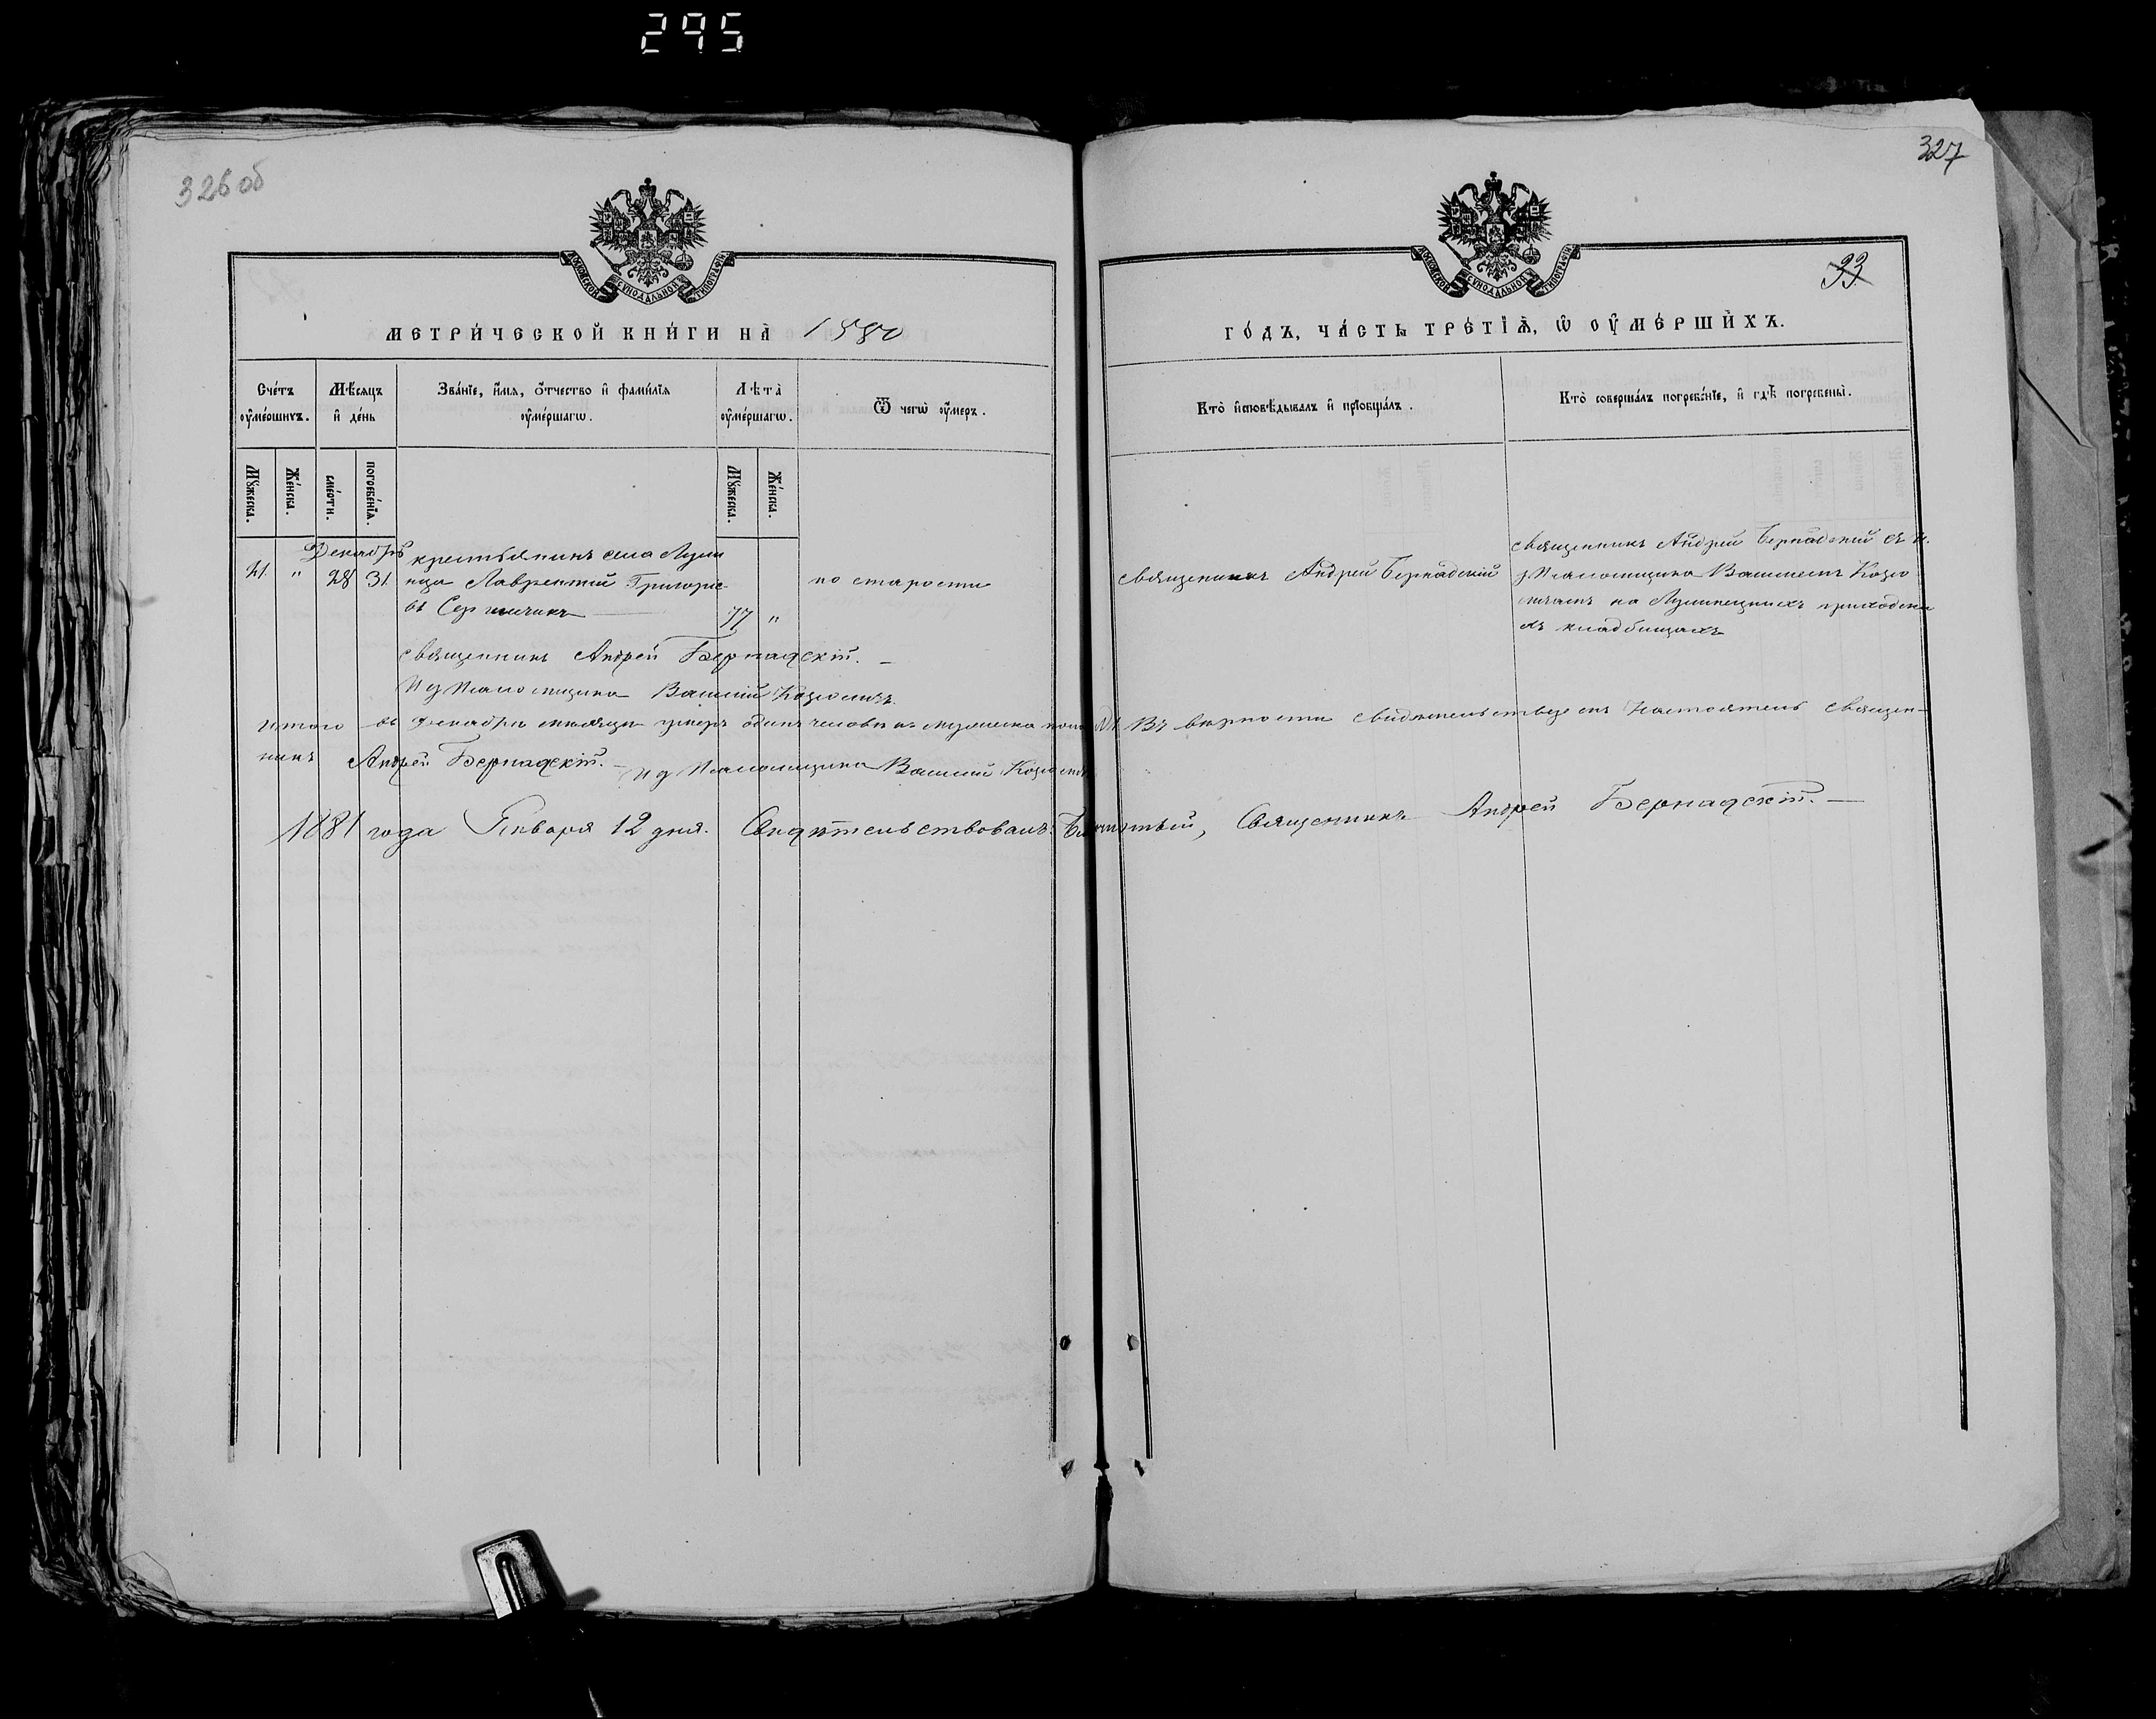 295
326 об
327
33
МОСКОВСКОЙ СѴНОДАЛЬНОЙ ТИПОГРАФІИ
МОСКОВСКОЙ СѴНОДАЛЬНОЙ ТИПОГРАФІИ
МЕТРИ́ЧЕСКОЙ КНИ́ГИ НА̀ 1880
ГО́ДЪ, ЧА́СТЬ ТРЕ́ТІѦ, Ѡ ОУ҆МЕ́РШИХЪ.
Сче́тъ оу҆ме́ршихъ.
Мѣ́сяцъ и҆ де́нь
Зва́нїе, и҆́мя, ѻ҆́тчество и҆ фами́лїя оу҆ме́ршагѡ.
Лѣ́та оу҆ме́ршагѡ.
Ѿ чегѡ̀ оу҆́меръ.
Кто̀ и҆сповѣ́дывалъ и҆ прїѻбща́лъ.
Кто̀ соверша́лъ погребе́нїе, и҆ гдѣ̀ погребены̀.
Мꙋ́жеска.
Же́нска.
сме́рти.
погребе́нїя.
Мꙋ́жеска.
Же́нска.
Декабрь
21. " 28 31.
крестьянинъ села
Лаврентій Григорье
въ
77 "
по старости
священникъ Андрей Бернадскій
священникъ Андрей Бернадскій съ и.
д Псаломщика
на приходски
хъ кладбищахъ
священникъ Андрей Бернадскій. –
И д Псаломщика Василій
Итого въ Декабрѣ мѣсяцѣ умеръ одинъ человѣкъ мужеска пола Въ вѣрности свидѣтельствуемъ Настоятель Священ-
никъ Андрей Бернадскій. – И д Псаломщика Василій
1881 года Января 12 дня. Свидѣтельствовалъ: Священникъ Андрей Бернадскій. —